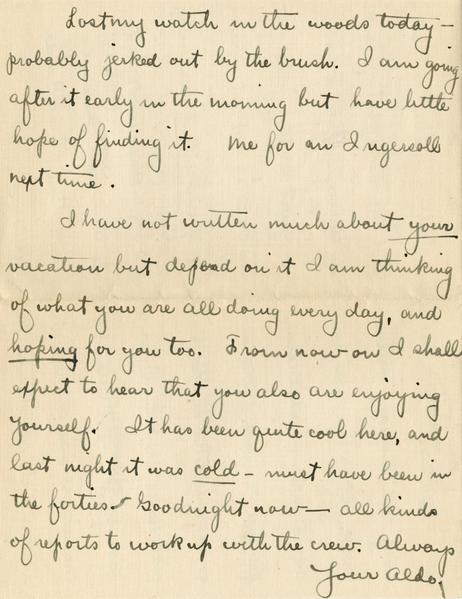 Lost my watch in the woods today –
probably jerked out by the brush. I am going
after it early in the morning but have little
hope of finding it. Me for an Ingersoll
next time.
I have not written much about your
vacation but depend on it I am thinking
of what you are all doing every day, and
hoping for you too. From now on I shall
expect to hear that you also are enjoying
yourself. It has been quite cool here, and
last night it was cold – must have been in
the forties – Goodnight now – all kinds
of reports to work up with the crew. Always
Your Aldo.